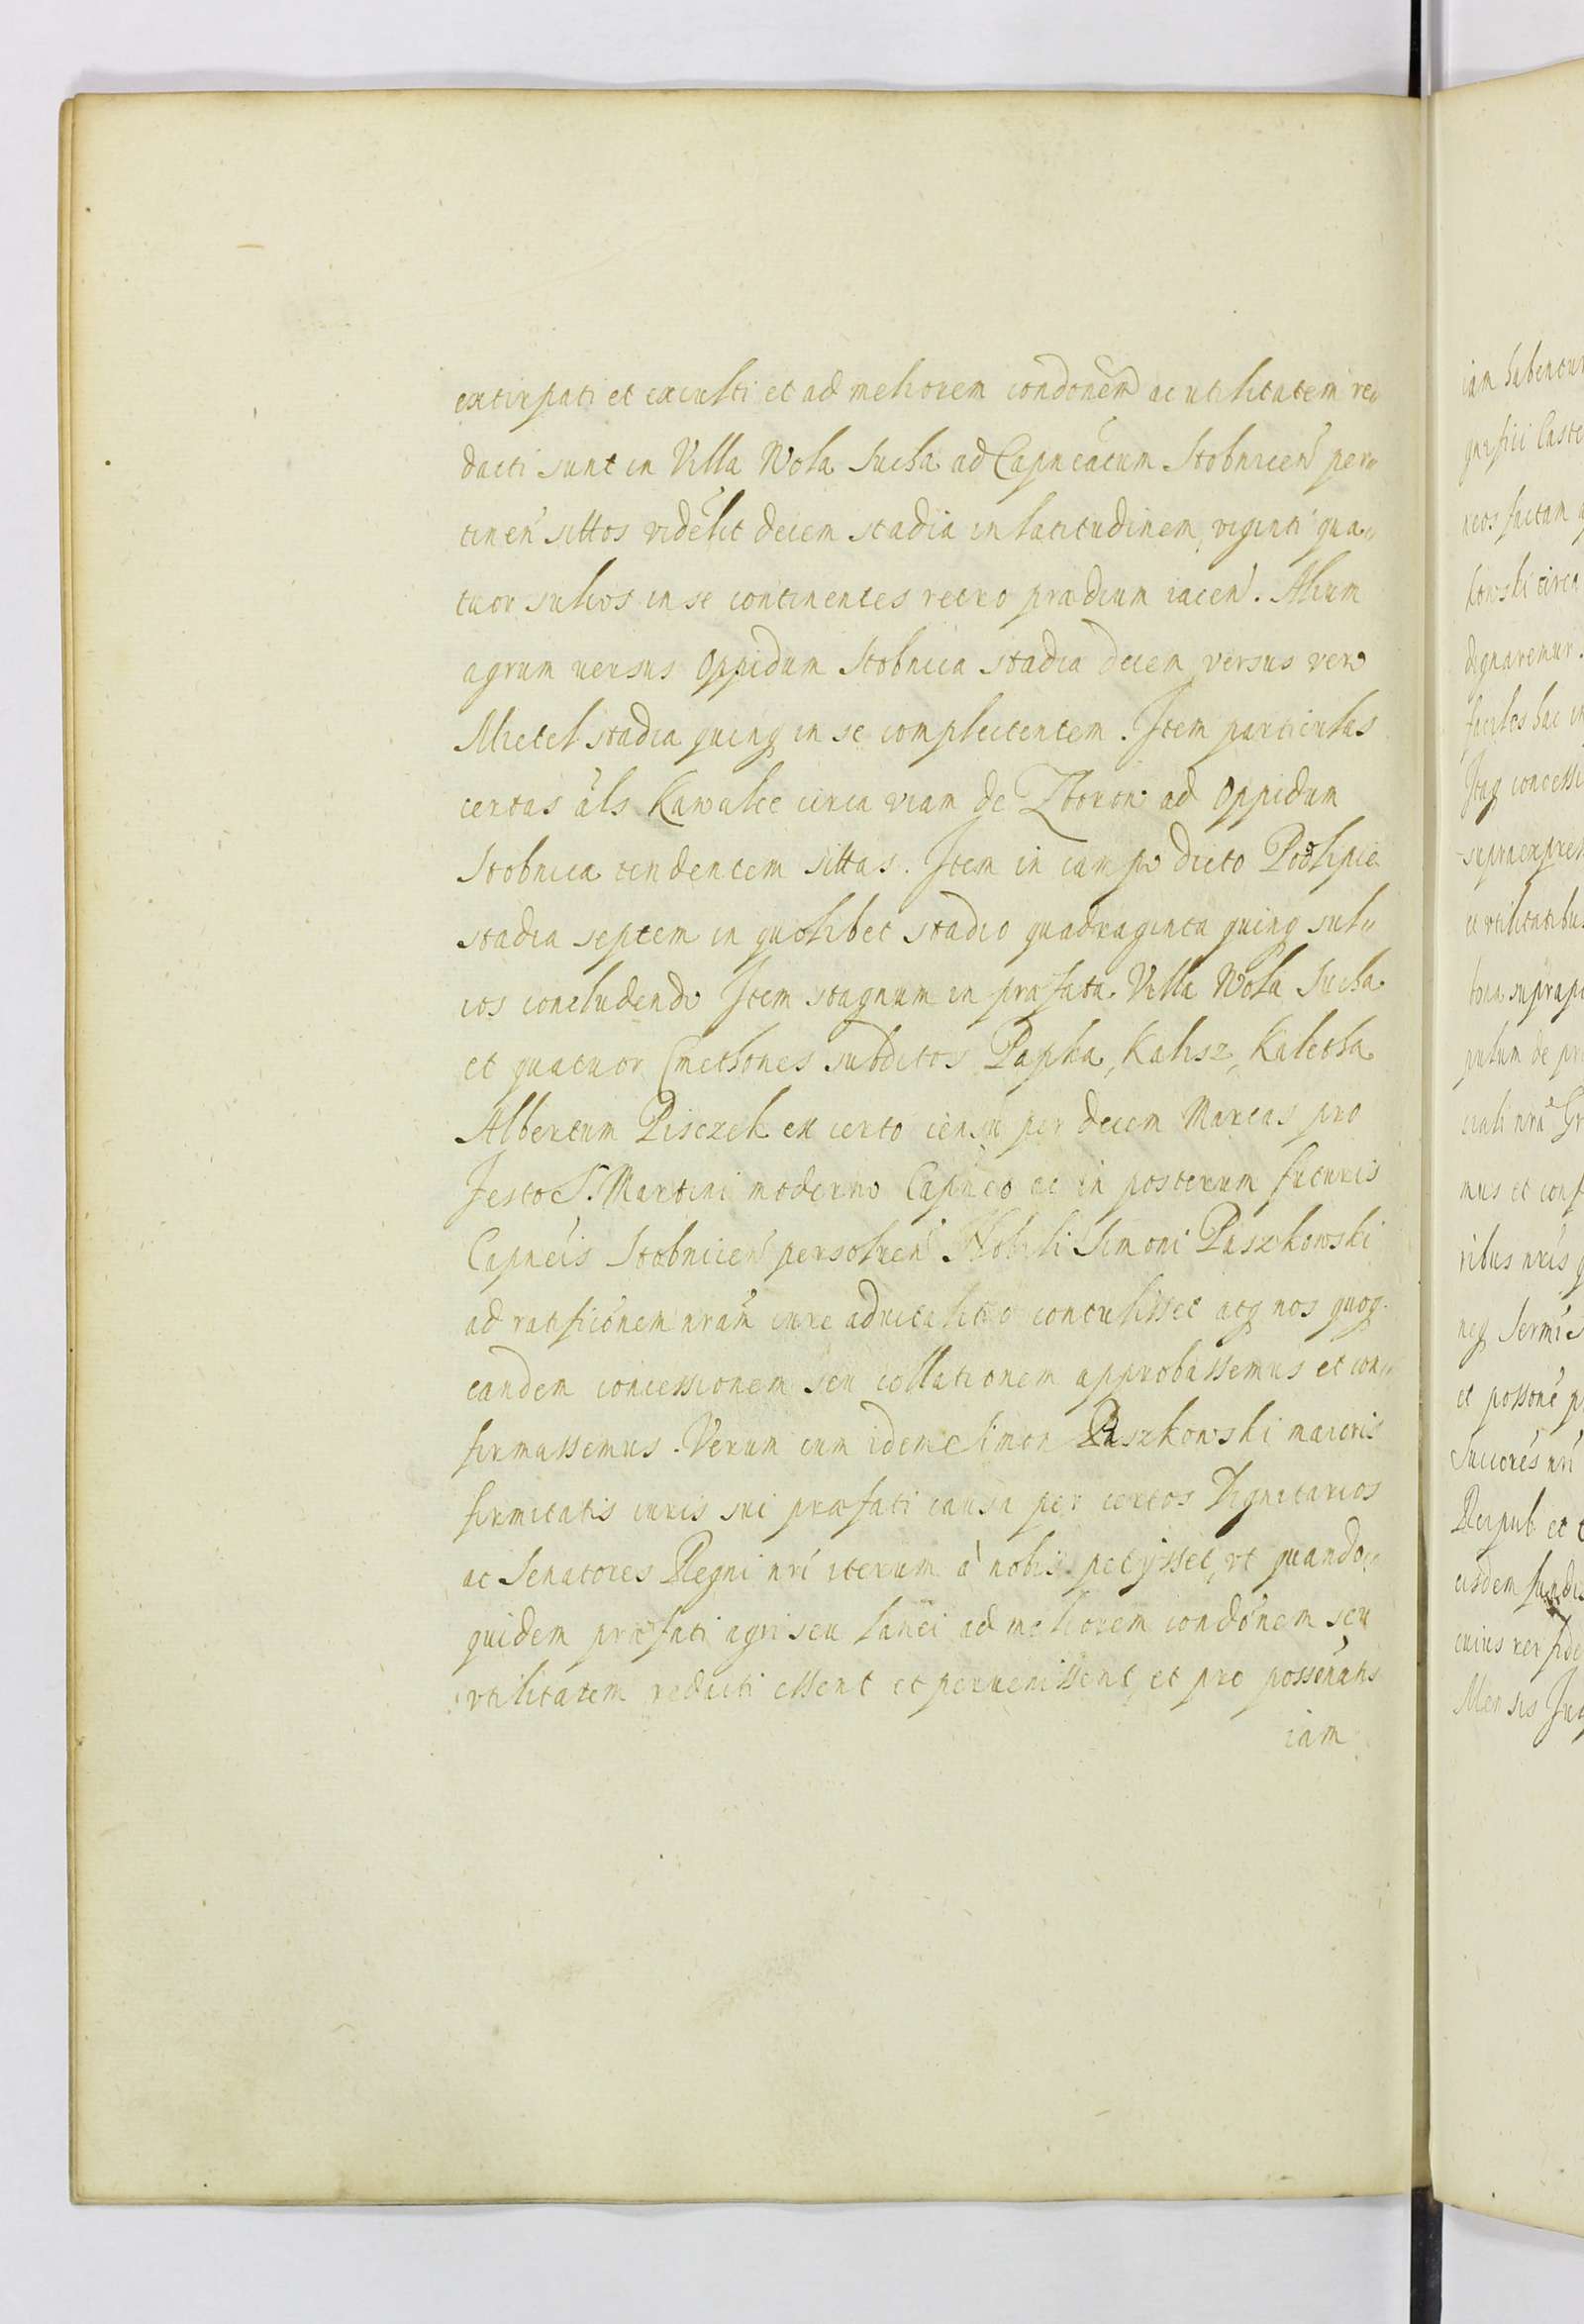 extirpati et exculti et ad meliorem condonem ac utilitatem re„
dacti sunt in Villa Wola Sucha ad Capneatum Stobnicen per„
tinen sittos videlit decem stadia in latitudinem, viginti qua„
tuor sulcos in se continentes retro prædium iacen. Alium
agrum versus Oppidum Stobnica stadia decem, versus vero
Mietel stadia quinq in se complectentem. Item particulas
certas als Kawalce circa viam de Zborow ad Oppidum
Stobnica tendentem sittas. Item in campo dicto Podlipie
stadia septem in quolibet stadio quadraginta quinq sul„
cos concludendo Item stagnum in præfata Villa Wola Sucha
et quatuor Cmethones subditos Papka, Kalisz, Kaletka
Albertum Pisczek ex certo censu per decem Marcas pro
festo S. Martini moderno Capneo ac in posterum futuris
Capneis Stobnicen persolven Nobili Simoni Paszkowski
ad ratificionem nram iure advitalitio contulisset atq nos quoq
eandem concessionem seu collationem approbassemus et con„
firmassemus. Verum cum idem Simon Paszkowski maioris
firmitatis iuris sui præfati causa per certos Dignitarios
ac Senatores Regni nri iterum à nobis petÿsset, vt quando„
quidem præfati agri seu lanei ad meliorem condonem seu
vtilitatem reducti essent et pervenissent, et pro
iam
iam habentur
neos factam
kowski circa
dignaremur.
Itaq concessi
et vtilitatibus
mus et conf
ribus nris
neq Sermi
et
Succores nri
Reipub et
eisdem
cuius rei fide
Mensis